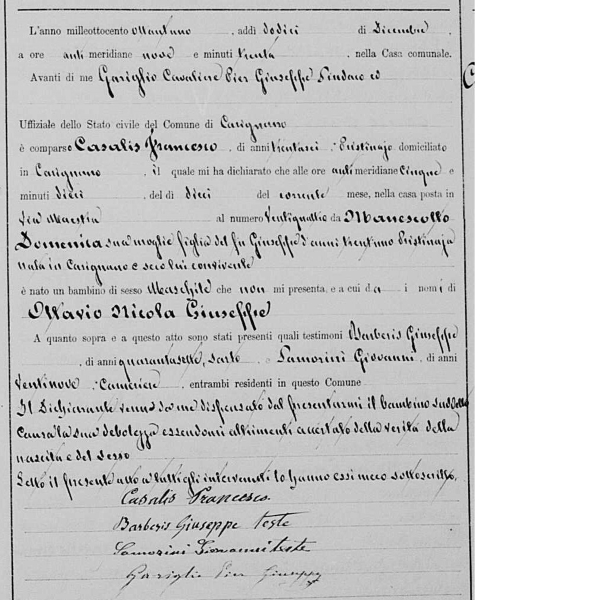 L'anno milleottocento ottantuno, addì dodici di Dicembre,
a ore anti meridiane nove e minuti trenta, nella Casa comunale.
Avanti di me Gariglio Cavaliere Pier Giuseppe Sindaco ed
Uffiziale dello Stato civile del Comune di Carignano
è comparso Casalis Francesco, di anni trentasei, Pristinajo domiciliato
in Carignano, il quale mi ha dichiarato che alle ore anti meridiane cinque e
minuti dieci, del dì dieci del corrente mese, nella casa posta in
Via Maestra al numero Ventiquattro da Manescotto
Domenica sua moglie figlia del fu Giuseppe d'anni trentuno Pristinaja
nata in Carignano e seco lui convivente
è nato un bambino di sesso Maschile che non mi presenta, e a cui dà i nomi di
Ottavio Nicola Giuseppe
A quanto sopra e a questo atto sono stati presenti quali testimoni Barberis Giuseppe
, di anni quarantasette, sarto e Samorini Giovanni, di anni
Ventinove Cameriere, entrambi residenti in questo Comune
Il Dichiarante venne da me dispensato dal presentarmi il bambino suddetto
causa la sua debolezza essendomi altrimenti accertato della verità della
nascita e del sesso
Letto il presente atto a tutti gli intervenuti lo hanno essi meco sottoscritto.
Casalis Francesco.
Barberis Giuseppe Teste
Samorini Giovanni teste
Gariglio Pier Giuseppe